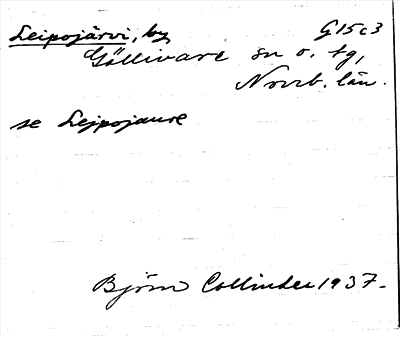 Leipojärvi, by G15c3
Gällivare sn o. tg,
Norrb. län.
se Lejpojaure
Björn Collinder 1937.